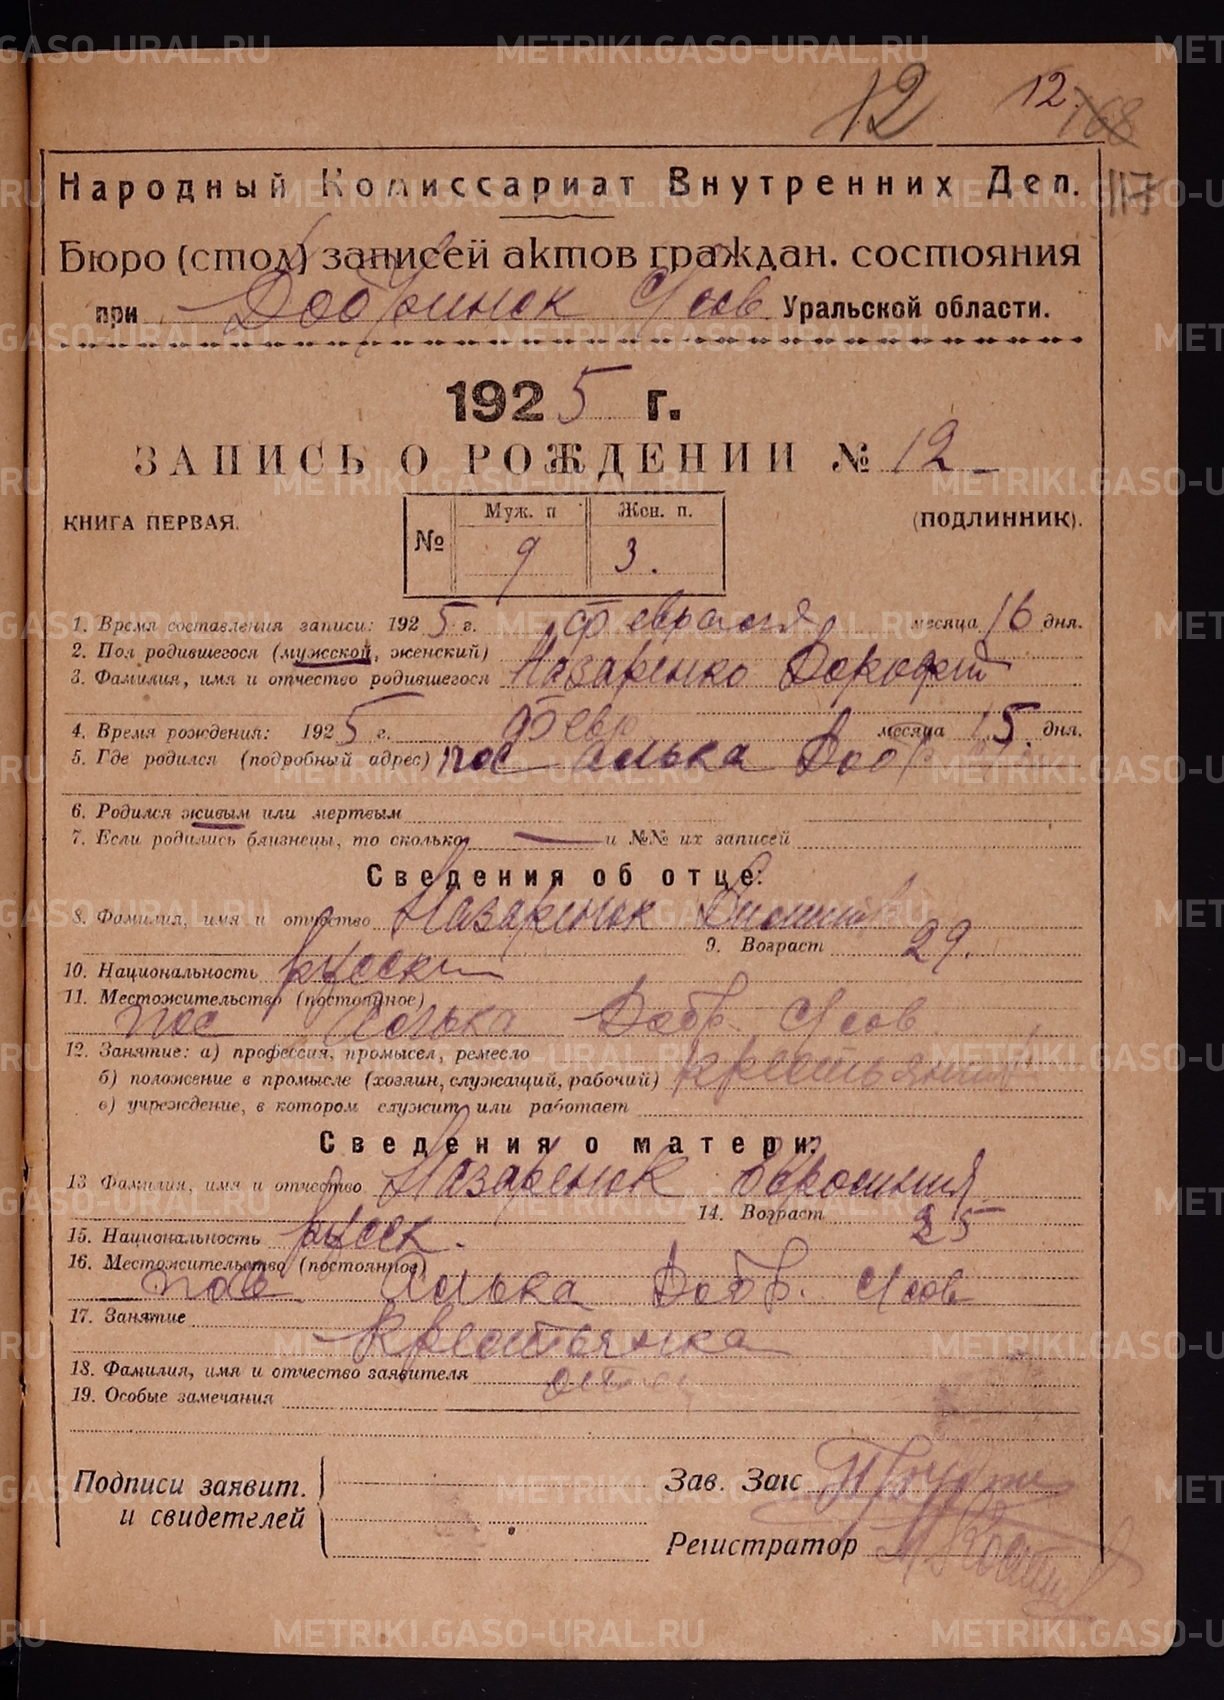 12 12. 168
117
Народный Комиссариат Внутренних Дел.
Бюро (стол) записей актов граждан. состояния
при Добринок С/сов. Уральской области.
1925 г.
ЗАПИСЬ О РОЖДЕНИИ № 12
КНИГА ПЕРВАЯ. № Муж. п Жен. п. (ПОДЛИННИК).
9 3.
1. Время составления записи: 1925 г. февраля месяца 16 дня.
2. Пол родившегося (мужской, женский)
3. Фамилия, имя и отчество родившегося Назаренко Дорофей
4. Время рождения: 1925 г. Февр месяца 15 дня.
5. Где родился (подробный адрес) пос Добр
6. Родился живым или мертвым
7. Если родились близнецы, то сколько — и №№ их записей
Сведения об отце:
8. Фамилия, имя и отчество Назаринок
9. Возраст 29.
10. Национальность русски
11. Местожительство (постоянное)
пос Добр. С/сов
12. Занятие: а) профессия, промысел, ремесло
б) положение в промысле (хозяин, служащий, рабочий) крестьянин
в) учреждение, в котором служит или работает
Сведения о матери:
13 Фамилия, имя и отчество Назаренок Евросиния
14. Возраст 25
15. Национальность русск.
16. Местожительство (постоянное)
пос Добр. С/сов
17. Занятие
Крестьянка
18. Фамилия, имя и отчество заявителя отец
19. Особые замечания
Подписи заявит.
и свидетелей
Зав. Загс
Регистратор
METRIKI.GASO-URAL.RU